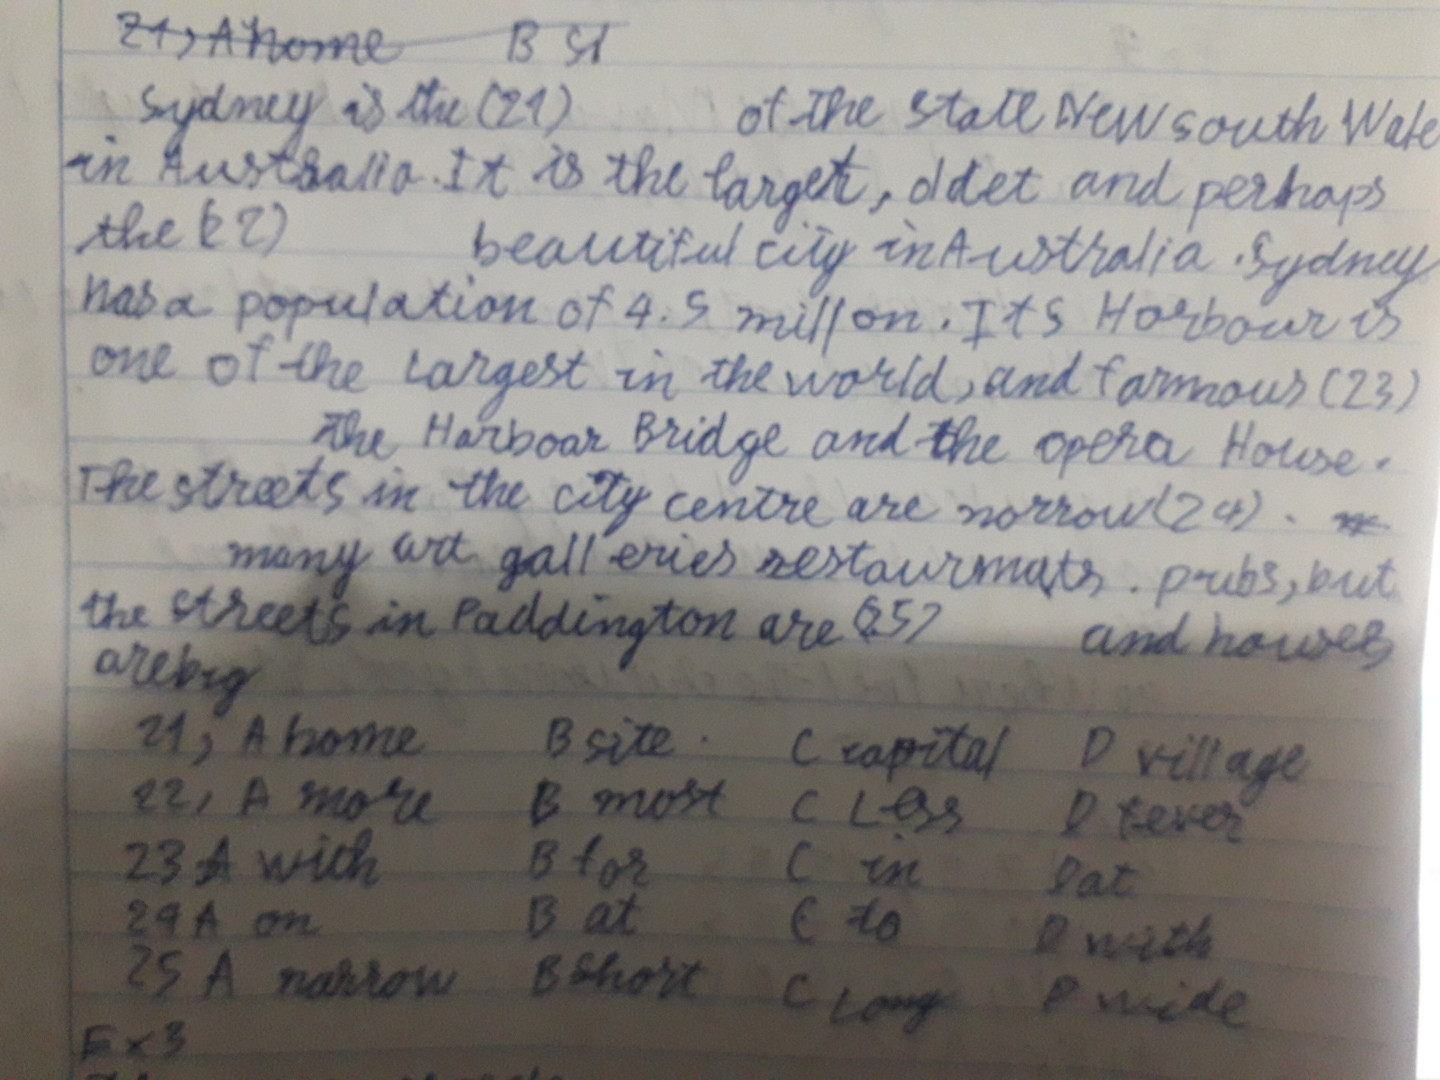 21, A home B si
Sydney is the (21) of the state New south Wale
in Australia. It is the larget, oldet and perhaps
the (22) beautiful city in Australia. Sydney
has a population of 4.5 millon. Its Horbour is
one of the largest in the world, and farmous (23)
the Harboar Bridge and the opera House.
The streets in the city centre are norrow (24).
many art galleries restaurmats. pubs, but
the streets in Paddington are (25) and houses
are big
21, A home B site. C capital D village
22, A more B most C Less D fever
23 A with B for C in D at
24 A on B at C to D with
25 A narrow B short C Long D wide
Ex 3